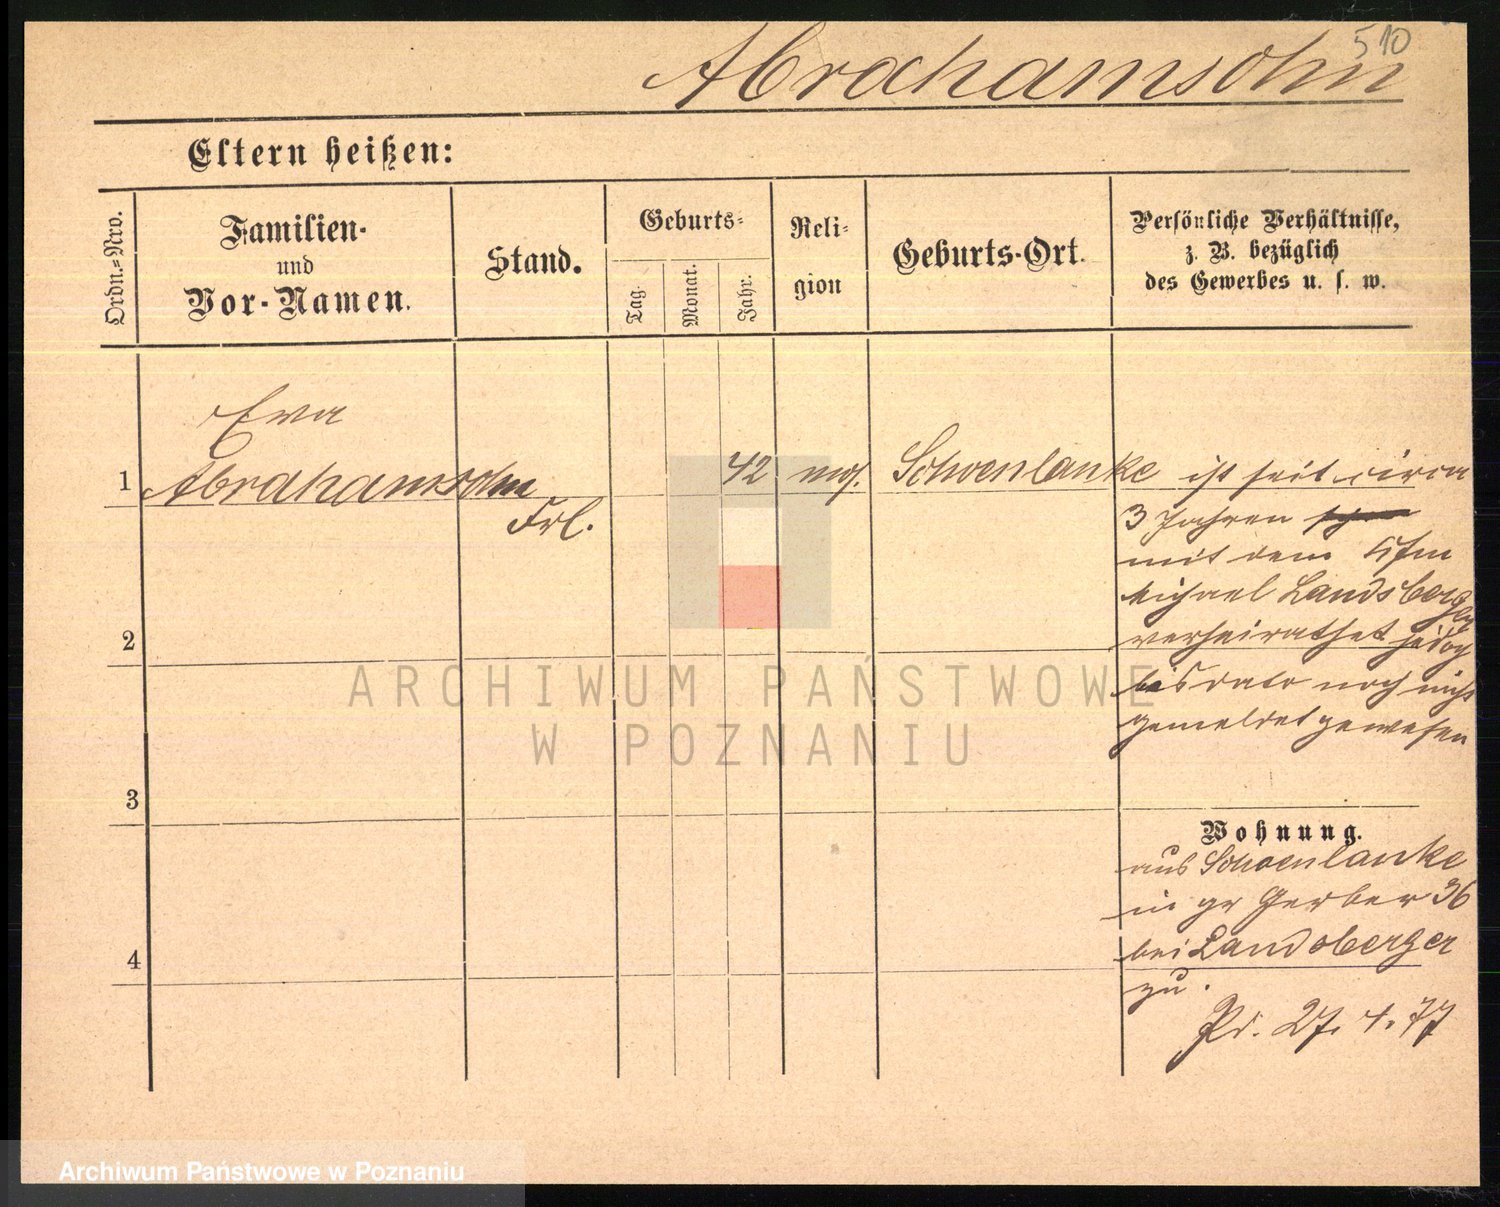 510
Abrahamsohn
Eltern heißen:
Ordn.=Nro.
Familien-
und
Vor-Namen.
Stand.
Geburts=
Tag.
Monat.
Jahr.
Reli=
gion
Geburts-Ort.
Persönliche Verhältnisse,
z. B. bezüglich
des Gewerbes u. s. w.
Eva
1 Abrahamsohn
Frl.
42 mos. Schoenlanke ist seit circa
3 Jahren
mit dem Kfm
Michael Landsberger
verheirathet jedoch
bis dato noch nicht
gemeldet gewesen
2
3
4
Wohnung.
aus Schoenlanke
in gr Gerber 36
bei Landsberger
zu.
Pr. 27. 4. 77
ARCHIWUM PAŃSTWOWE
W POZNANIU
Archiwum Państwowe w Poznaniu